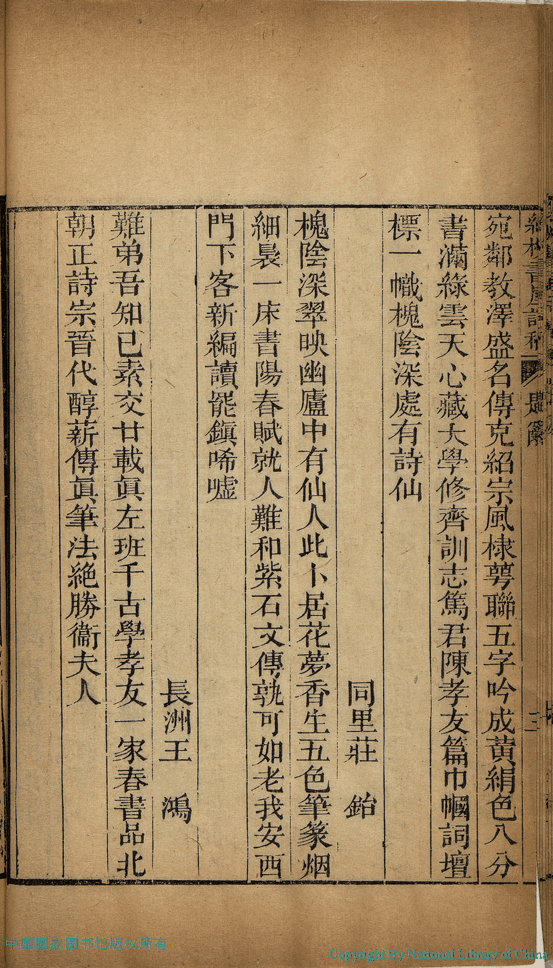 宛鄰教澤盛名傳克紹宗風棣萼聯五字吟成黃絹色八分
書滿綠雲天心藏大學修齊訓志篤君陳孝友篇巾幗詞壇
標一幟槐陰深處有詩仙
同里莊　鈶
槐陰深翠映幽廬中有仙人此卜居花夢香生五色筆篆烟
細裊一床書陽春賦就人難和紫石文傳孰可如老我安西
門下客新編讀罷鎮唏噓
長洲王　鴻
難弟吾知已素交廿載眞左班千古學孝友一家春書品北
朝正詩宗晉代醇薪傳眞筆法絕勝衞夫人
Copyright By National Library of China